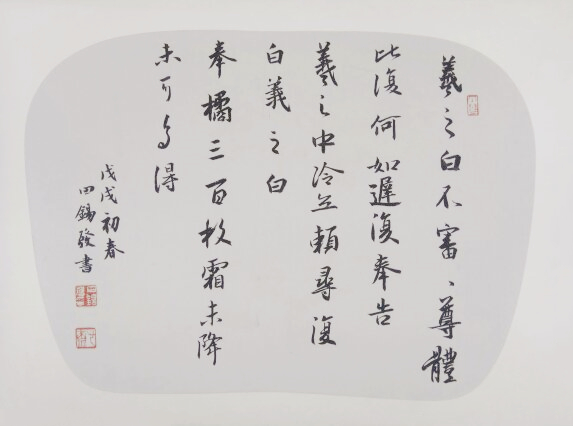 羲之白不審、尊體
比復何如遲復奉告
羲之中冷無賴尋復
白羲之白
奉橘三百枚霜未降
未可多得
戊戌初春
田錫發書